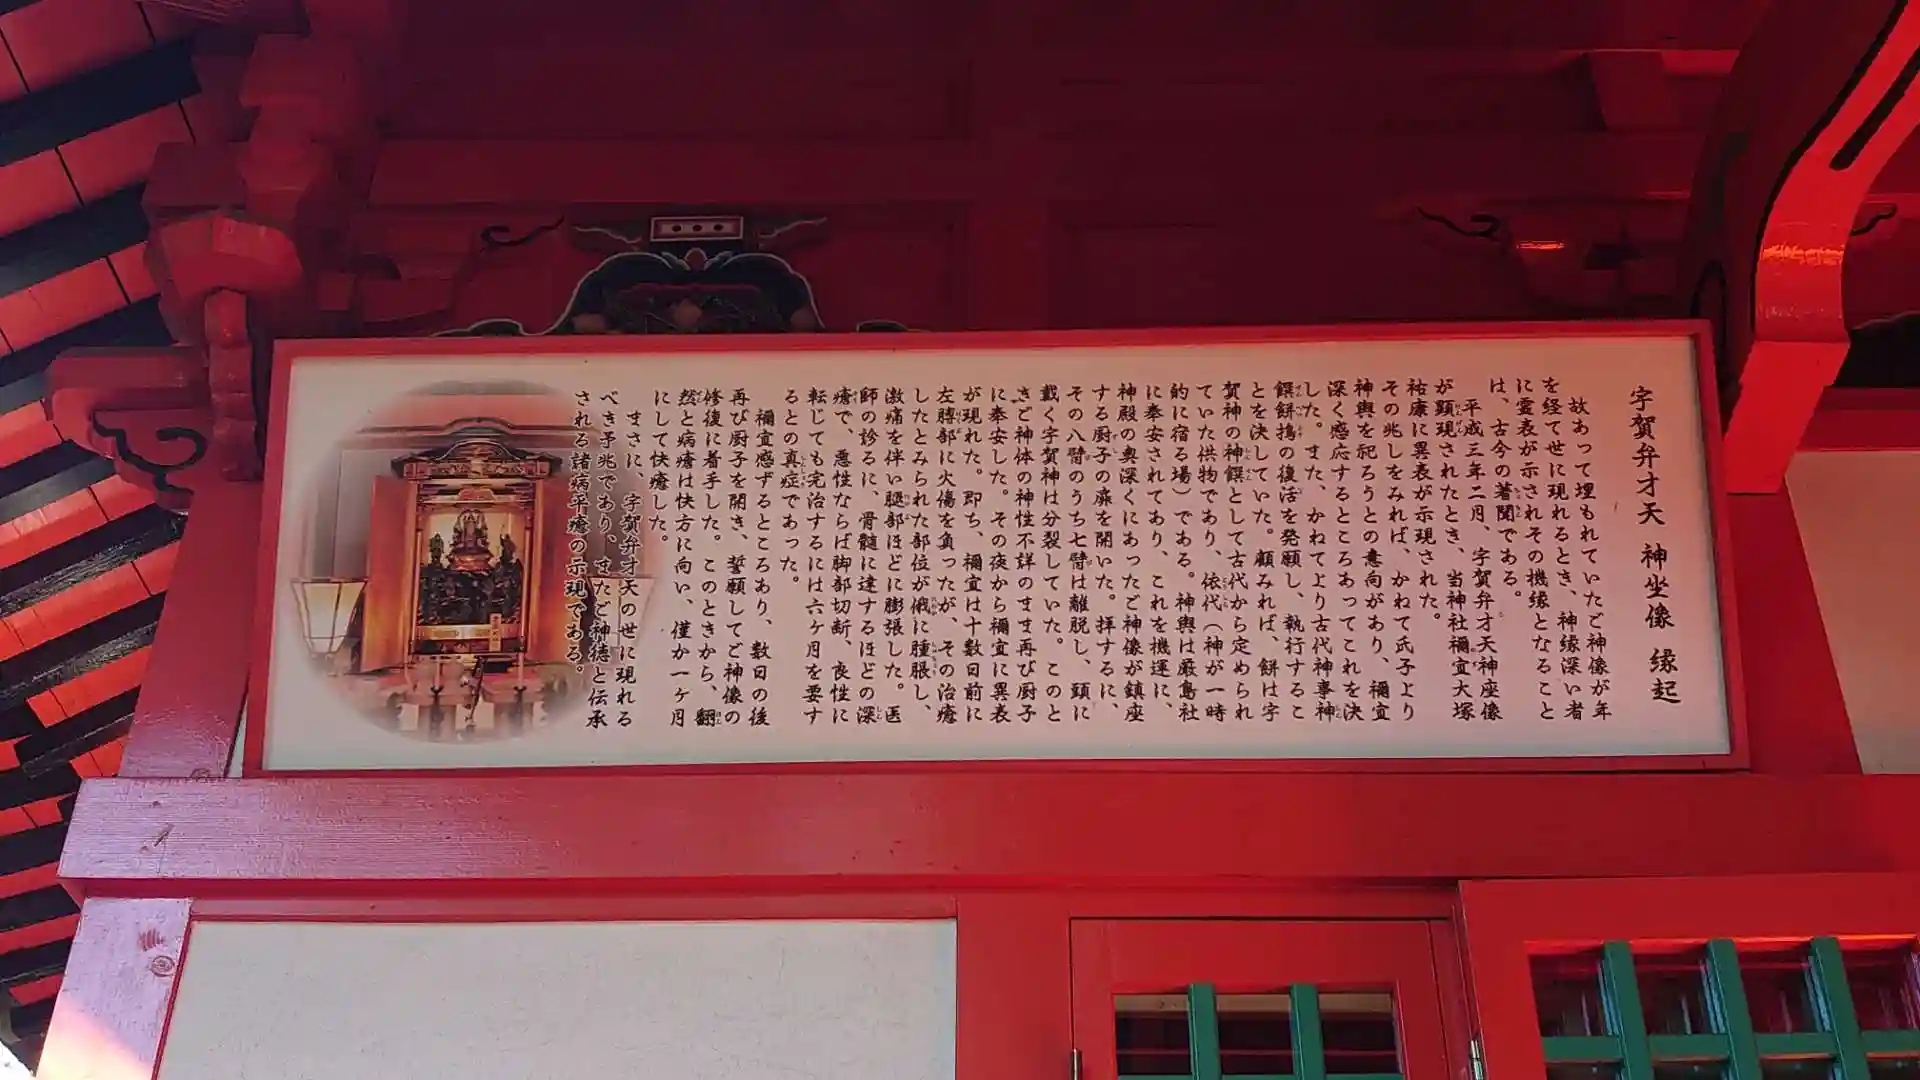 宇賀弁才天 神坐像 縁起
故あって埋もれていたご神像が年
を経て世に現れるとき、神縁深い者
に霊表が示されその機縁となること
は、古今の著聞である。
平成三年二月、宇賀弁才天神座像
が顕現されたとき、当神社禰宜大塚
祐康に異表が示現された。
その兆しをみれば、かねて氏子より
神輿を祀ろうとの意向があり、禰宜
深く感応するところあってこれを決
した。また、かねてより古代神事神
饌餅搗の復活を発願し、執行するこ
とを決していた。顧みれば、餅は宇
賀神の神饌として古代から定められ
ていた供物であり、依代（神が一時
的に宿る場）である。神輿は厳島社
に奉安されてあり、これを機運に、
神殿の奥深くにあったご神像が鎮座
する厨子の扉を開いた。拝するに、
その八臂のうち七臂は離脱し、頭に
戴く宇賀神は分裂していた。このと
きご神体の神性不詳のまま再び厨子
に奉安した。その夜から禰宜に異表
が現れた。即ち、禰宜は十数日前に
左膊部に火傷を負ったが、その治癒
したとみられた部位が俄に腫脹し、
激痛を伴い腿部ほどに膨張した。医
師の診るに、骨髄に達するほどの深
瘡で、悪性ならば脚部切断、良性に
転じても完治するには六ヶ月を要す
るとの真症であった。
禰宜感ずるところあり、数日の後
再び厨子を開き、誓願してご神像の
修復に着手した。このときから、翻
然と病瘡は快方に向い、僅か一ヶ月
にして快癒した。
まさに、宇賀弁才天の世に現れる
べき予兆であり、またご神徳と伝承
される諸病平癒の示現である。